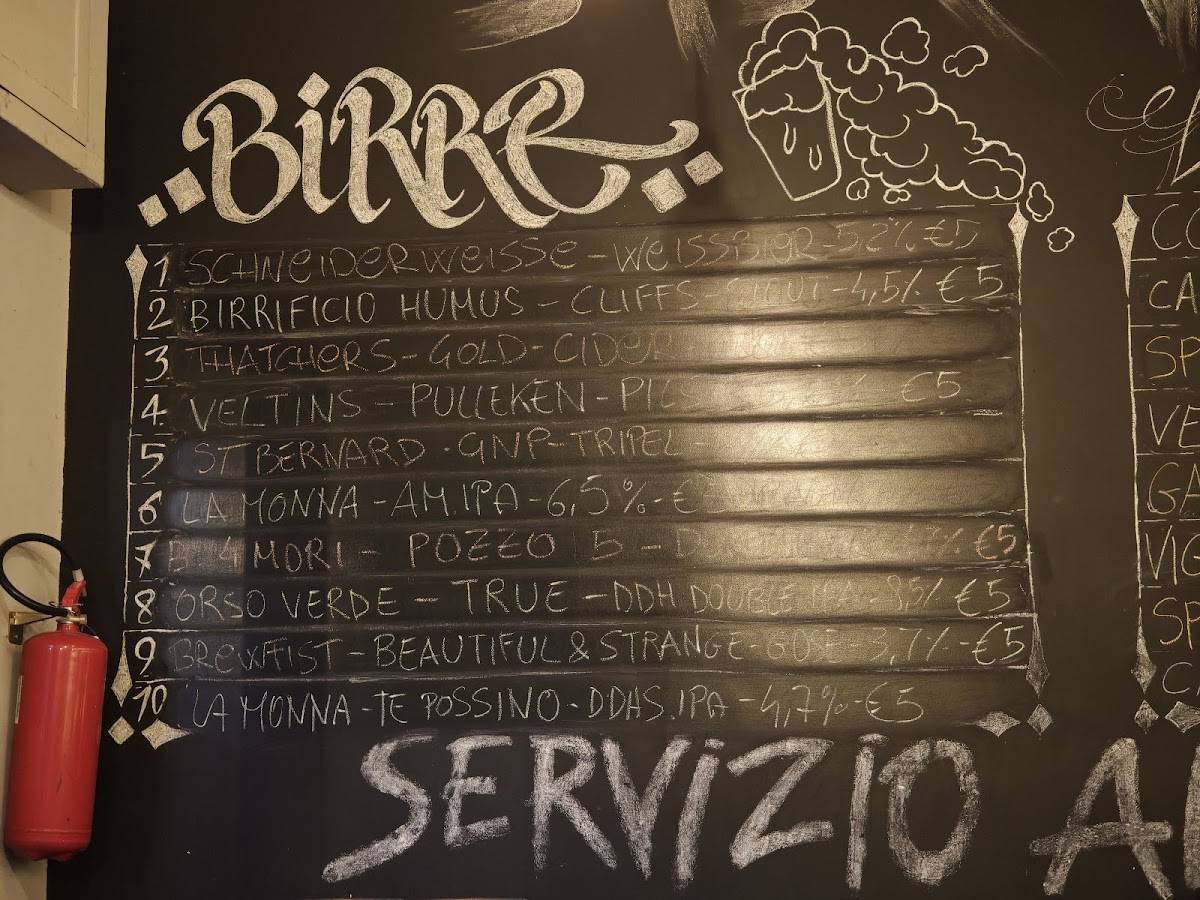 BiRRe
1 SCHNEIDERWEISSE - WEISSBIER - 5,2% €5
2 BIRRIFICIO HUMUS - CLIFFS - 4,5% €5
3 THATCHERS - GOLD - CIDER
4 VELTINS - PULLEKEN - PILS €5
5 ST BERNARD - GNP - TRIPEL -
6 LA MONNA - AM.IPA - 6,5% - €5
7 B. 4 MORI - POZZO 5 - % €5
8 ORSO VERDE - TRUE - DDH DOUBLE 8,5% €5
9 BREWFIST - BEAUTIFUL & STRANGE - GOSE 3,7% - €5
10 LA MONNA - TE POSSINO - DDHS.IPA - 4,7% - €5
SERViZiO
CA
SP
VE
GA
VIG
SP